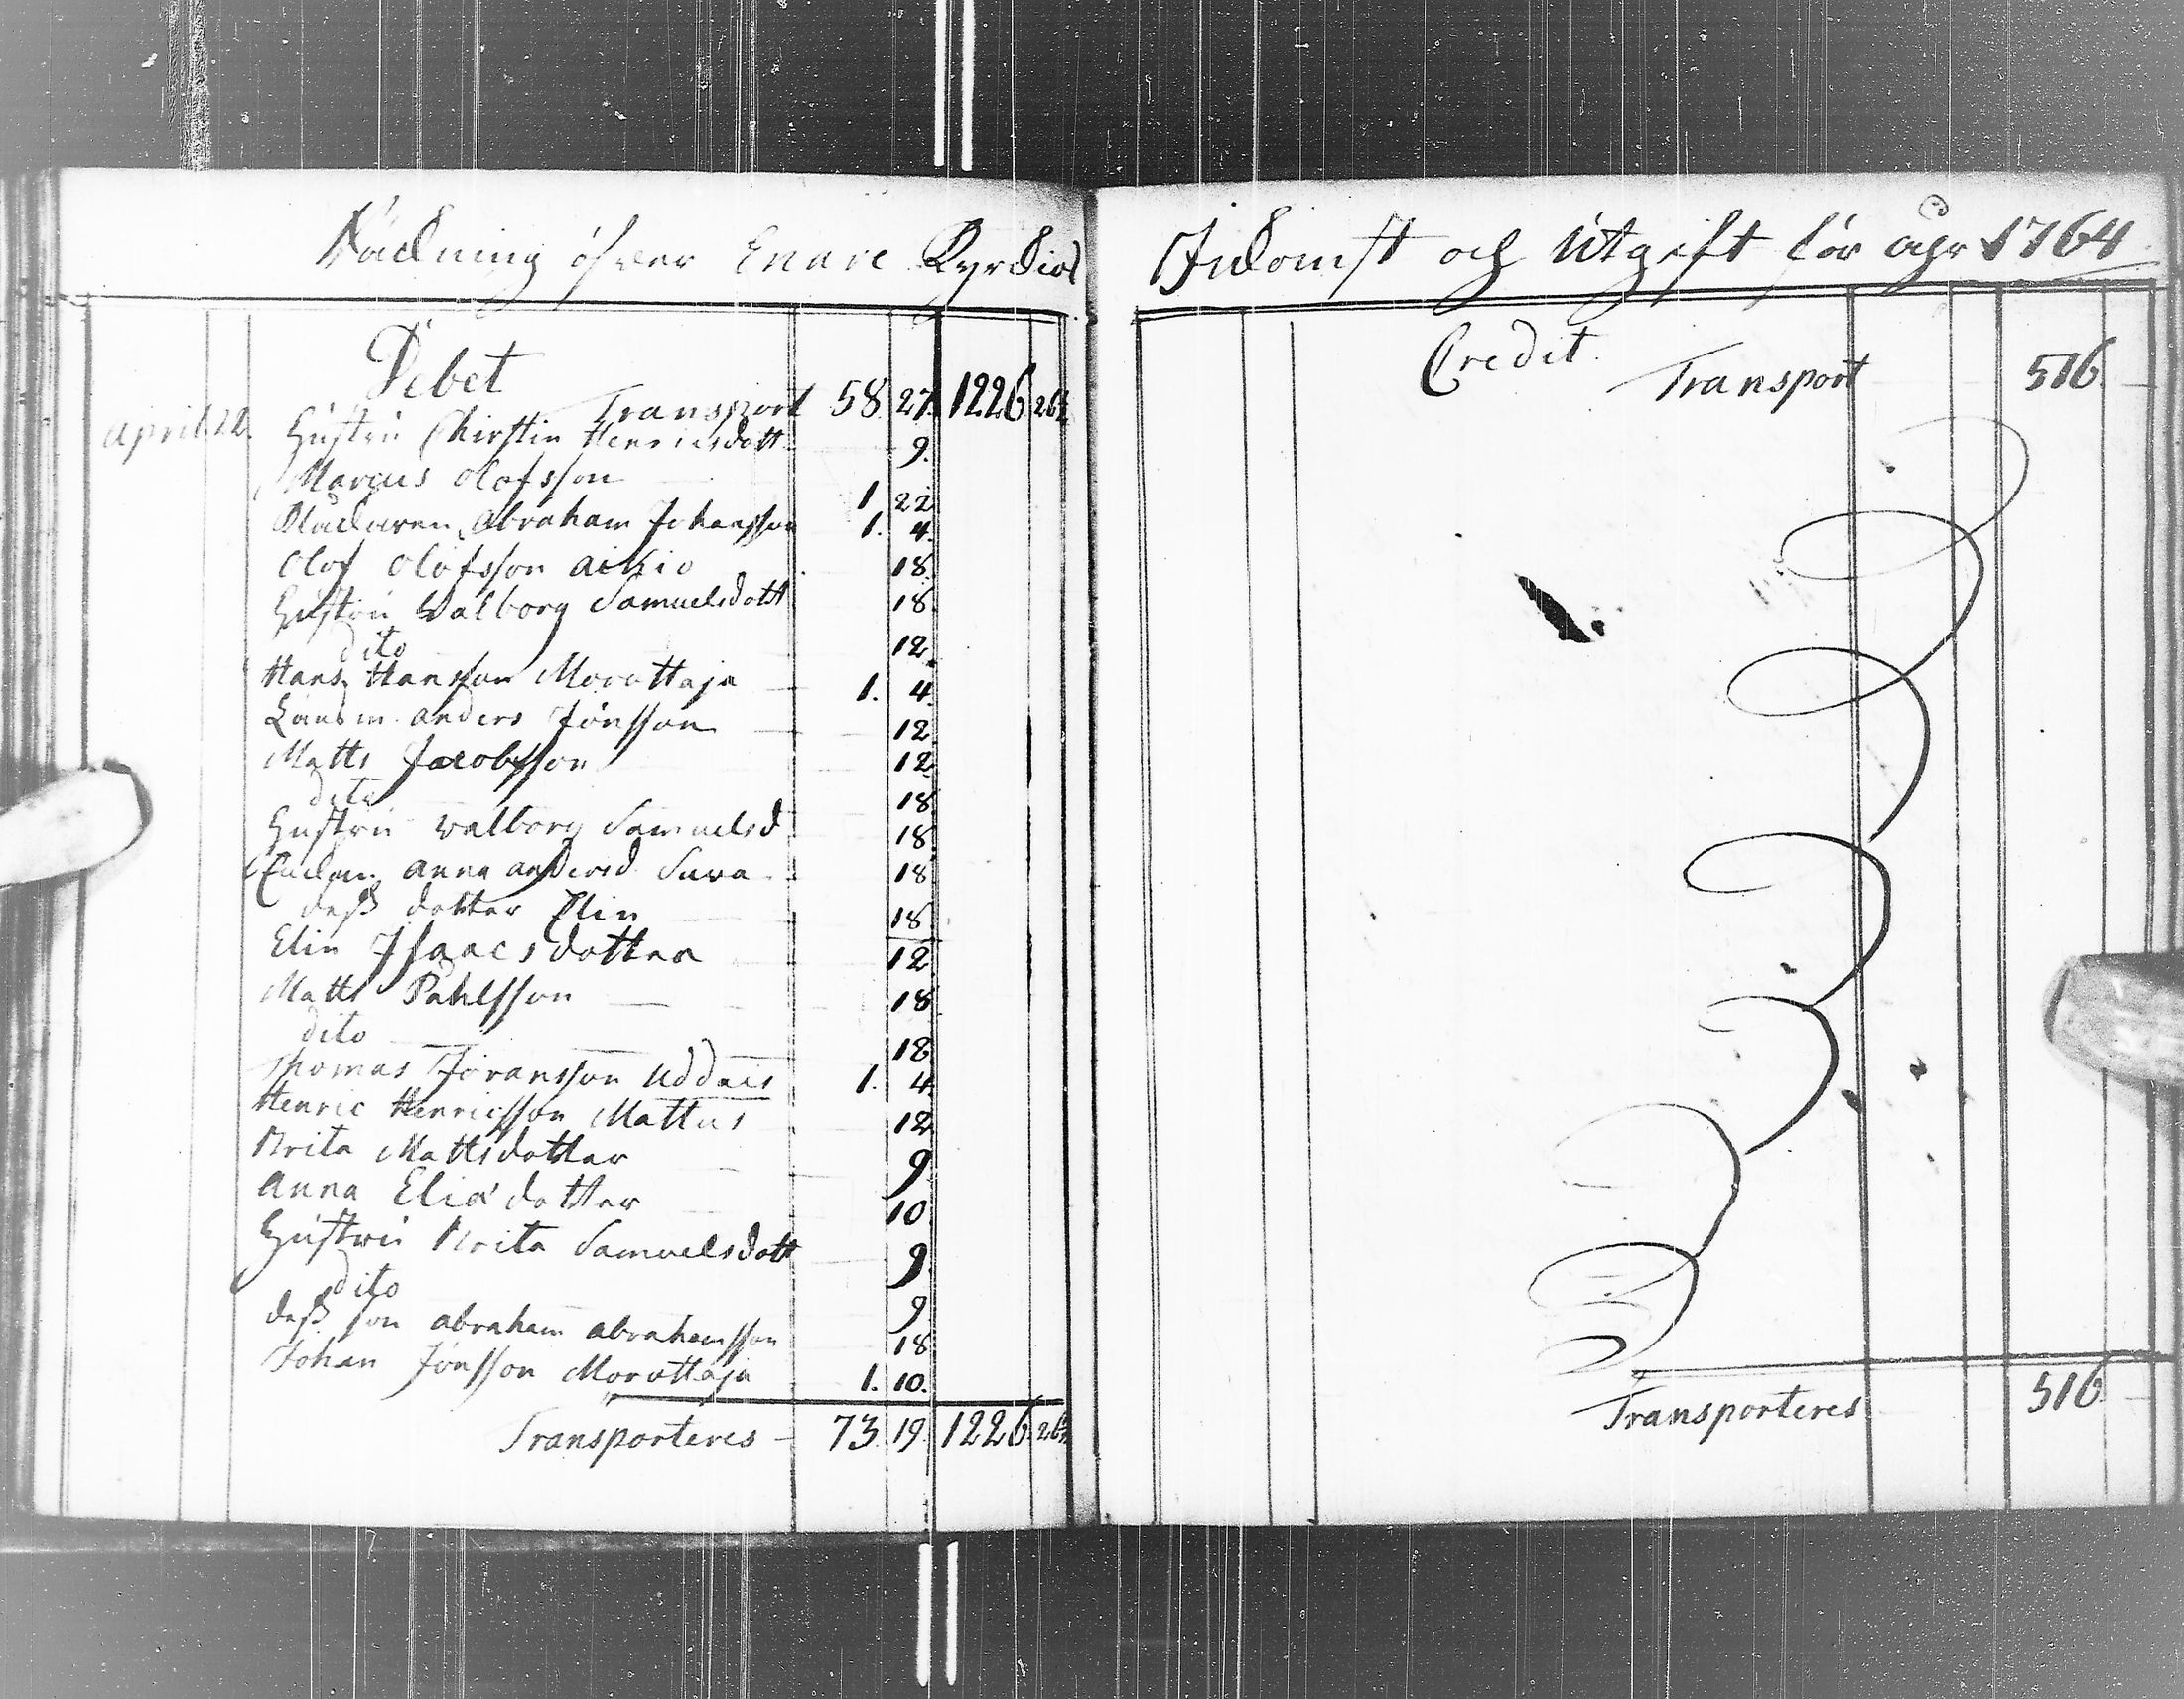 Räckning öfwer Enare Kyrckios
Debet
Transport 58. 27. 1226 26½
april. 22. Hustru Chirstin Henricsdott. 9.
Marcus Olofsson 1 22
Klåckaren Abraham Johansson 1. 4.
Olof Olofsson Aikio 18.
Hustru Walborg Samuelsdott 18.
dito 12.
Hans Hansson Morottaja 1. 4.
Länsm. Anders Jönsson 12.
Matts Jacobsson 12.
dito 18.
Hustru Walborg Samuelsd 18.
Anna Andersd. Sara 18.
dess dotter Elin 18
Elin Isaacsdotter 12.
Matts Påhlsson 18
dito 18.
Thomas Jöransson Uddais 1. 4.
Henric Henricsson Mattus 12.
Brita Mattsdotter 9
Anna Eliædotter 10.
Hustru Brita Samuelsdott 9.
dito 9
dess son Abraham Abrahamsson 18
Johan Jönsson Morottaja 1. 10.
Transporteres 73. 19. 1226. 26½
Inkomst och Utgift för åhr 1764
Credit.
Transport 516.
Transporteres 516.